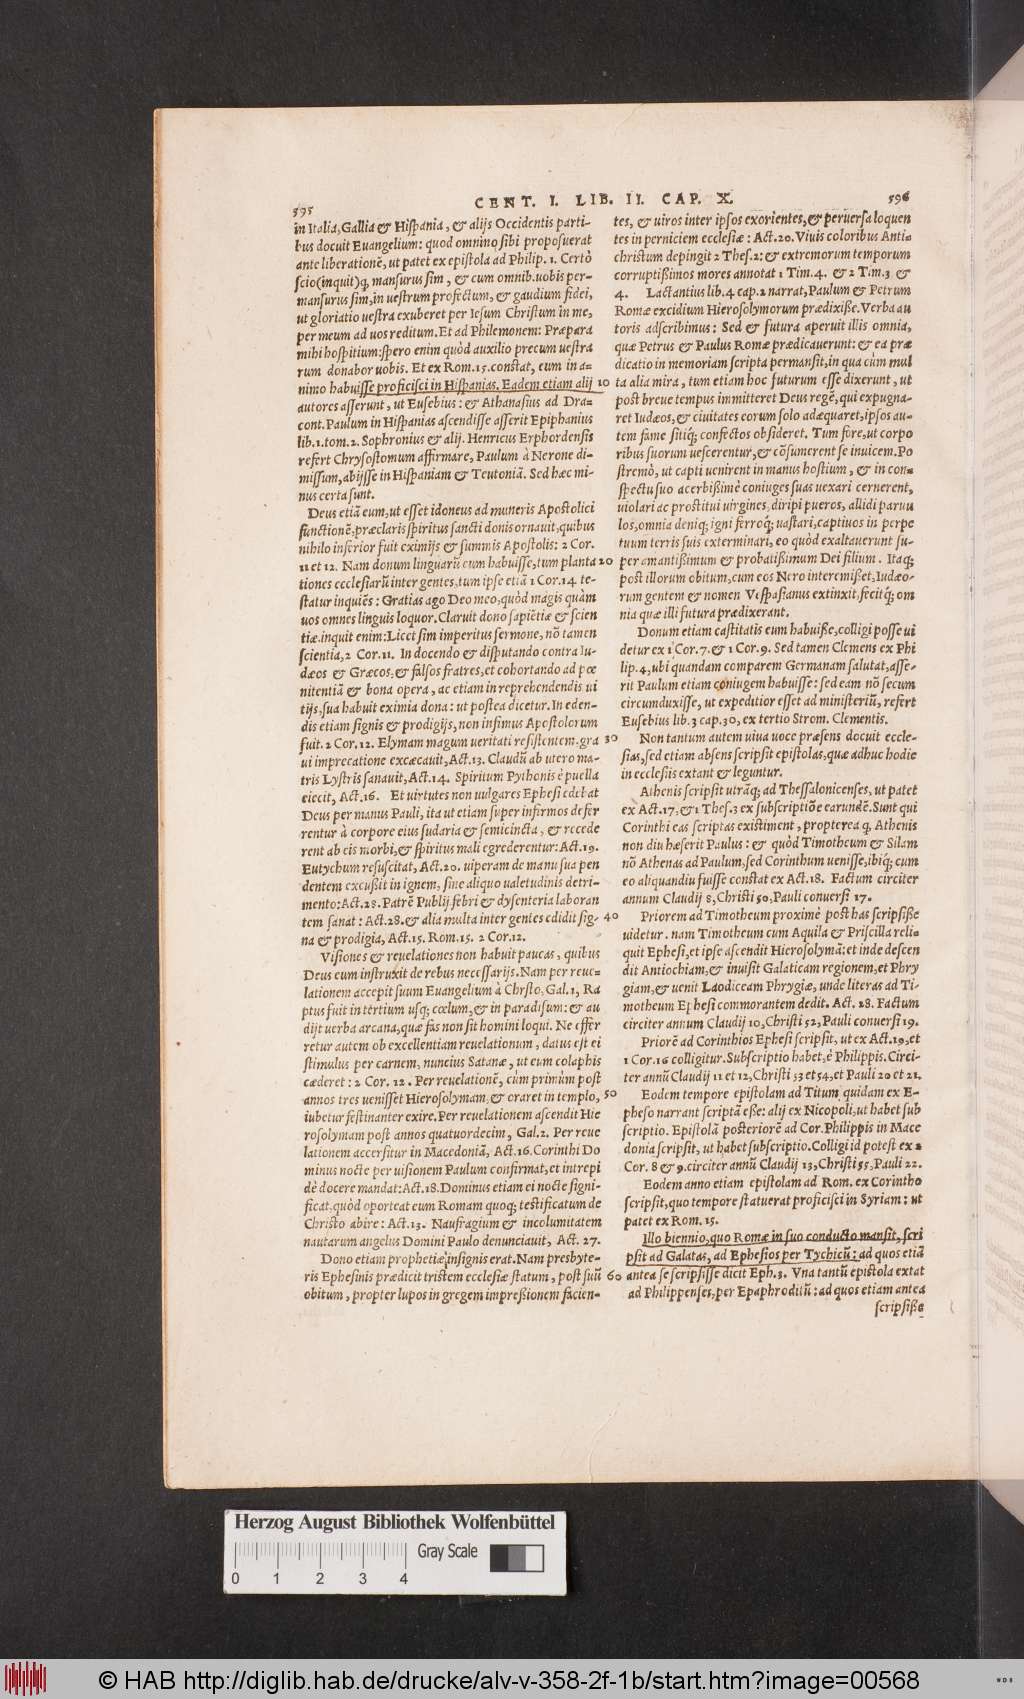 595
CENT. I. LIB. II. CAP. X.
596
in Italia, Gallia & Hispania, & alijs Occidentis parti-
bus docuit Euangelium: quod omnino sibi proposuerat
ante liberationē, ut patet ex epistola ad Philip. 1. Certò
scio (inquit) q, mansurus sim, & cum omnib. uobis per-
mansurus sim, in uestrum profectum, & gaudium fidei,
ut gloriatio uestra exuberet per Iesum Christum in me,
per meum ad uos reditum. Et ad Philemonem: Præpara
mihi hospitium: spero enim quòd auxilio precum uestra
rum donabor uobis. Et ex Rom. 15. constat, eum in a-
nimo habuisse proficisci in Hispanias. Eadem etiam alij 10
autores asserunt, ut Eusebius: & Athanasius ad Dra-
cont. Paulum in Hispanias ascendisse asserit Epiphanius
lib. 1. tom. 2. Sophronius & alij. Henricus Erphordensis
refert Chrysostomum affirmare, Paulum à Nerone di-
missum, abijsse in Hispaniam & Teutoniã. Sed hæc mi-
nus certa sunt.
Deus etiã eum, ut esset idoneus ad muneris Apostolici
functionē, præclaris spiritus sancti donis ornauit, quibus
nihilo inferior fuit eximijs & summis Apostolis: 2 Cor.
11 et 12. Nam donum linguarũ eum habuisse, tum planta 20
tiones ecclesiarũ inter gentes, tum ipse etiã 1 Cor. 14 te-
statur inquiēs: Gratias ago Deo meo, quòd magis quàm
uos omnes linguis loquor. Claruit dono sapiētiæ & scien
tiæ. inquit enim: Licet sim imperitus sermone, nõ tamen
scientia, 2 Cor. 11. In docendo & disputando contra Iu-
dæos & Græcos, & falsos fratres, et cohortando ad pœ
nitentiã & bona opera, ac etiam in reprehendendis ui
tijs, sua habuit eximia dona: ut postea dicetur. In eden-
dis etiam signis & prodigijs, non infimus Apostolorum
fuit. 2 Cor. 12. Elymam magum ueritati resistentem, gra 30
ui imprecatione excæcauit, Act. 13. Claudũ ab utero ma-
tris Lystris sanauit, Act. 14. Spiritum Pythonis è puella
eiecit, Act. 16. Et uirtutes non uulgares Ephesi edebat
Deus per manus Pauli, ita ut etiam super infirmos defer
rentur à corpore eius sudaria & semicincta, & recede
rent ab eis morbi, & spiritus mali egrederentur: Act. 19.
Eutychum resuscitat, Act. 20. uiperam de manu sua pen
dentem excußit in ignem, sine aliquo ualetudinis detri-
mento: Act. 28. Patrē Publij febri & dysenteria laboran
tem sanat: Act. 28. & alia multa inter gentes edidit sig- 40
na & prodigia, Act. 15. Rom. 15. 2 Cor. 12.
Visiones & reuelationes non habuit paucas, quibus
Deus eum instruxit de rebus necessarijs. Nam per reue-
lationem accepit suum Euangelium à Chrsto, Gal. 1, Ra
ptus fuit in tertium usq; cœlum, & in paradisum: & au
dijt uerba arcana, quæ fas non sit homini loqui. Ne effer
retur autem ob excellentiam reuelationum, datus est ei
stimulus per carnem, nuncius Satanæ, ut eum colaphis
cæderet: 2 Cor. 12. Per reuelationē, cùm primùm post
annos tres uenisset Hierosolymam, & oraret in templo, 50
iubetur festinanter exire. Per reuelationem ascendit Hie
rosolymam post annos quatuordecim, Gal. 2. Per reue
lationem accersitur in Macedoniã, Act. 16. Corinthi Do
minus nocte per uisionem Paulum confirmat, et intrepi
dè docere mandat: Act. 18. Dominus etiam ei nocte signi-
ficat, quòd oporteat eum Romam quoq; testificatum de
Christo abire: Act. 13. Naufragium & incolumitatem
nautarum angelus Domini Paulo denunciauit, Act. 27.
Dono etiam prophetiæ insignis erat. Nam presbyte-
ris Ephesinis prædicit tristem ecclesiæ statum, post suũ 60
obitum, propter lupos in gregem impreßionem facien-
tes, & uiros inter ipsos exorientes, & peruersa loquen
tes in perniciem ecclesiæ: Act. 20. Viuis coloribus Anti-
christum depingit 2 Thes. 2: & extremorum temporum
corruptißimos mores annotat 1 Tim. 4. & 2 Tim. 3 &
4. Lactantius lib. 4 cap. 2 narrat, Paulum & Petrum
Romæ excidium Hierosolymorum prædixiße. Verba au
toris adscribimus: Sed & futura aperuit illis omnia,
quæ Petrus & Paulus Romæ prædicauerunt: & ea præ
dicatio in memoriam scripta permansit, in qua cùm mul
ta alia mira, tum etiam hoc futurum esse dixerunt, ut
post breue tempus immitteret Deus regē, qui expugna-
ret Iudæos, & ciuitates eorum solo adæquaret, ipsos au-
tem fame sitiq; confectos obsideret. Tum fore, ut corpo
ribus suorum uescerentur, & cõsumerent se inuicem. Po
stremò, ut capti uenirent in manus hostium, & in con-
spectu suo acerbißimè coniuges suas uexari cernerent,
uiolari ac prostitui uirgines, diripi pueros, allidi paruu
los, omnia deniq; igni ferroq; uastari, captiuos in perpe
tuum terris suis exterminari, eo quòd exaltauerunt su-
per amantißimum & probatißimum Dei filium. Itaq;
post illorum obitum, cum eos Nero interemißet, Iudæo-
rum gentem & nomen Vespasianus extinxit, fecitq; om
nia quæ illi futura prædixerant.
Donum etiam castitatis eum habuiße, colligi posse ui
detur ex 1 Cor. 7. & 1 Cor. 9. Sed tamen Clemens ex Phi
lip. 4, ubi quandam comparem Germanam salutat, asse-
rit Paulum etiam coniugem habuisse: sed eam nõ secum
circumduxisse, ut expeditior esset ad ministeriũ, refert
Eusebius lib. 3 cap. 30, ex tertio Strom. Clementis.
Non tantum autem uiua uoce præsens docuit eccle-
sias, sed etiam absens scripsit epistolas, quæ adhuc hodie
in ecclesiis extant & leguntur.
Athenis scripsit utrãq; ad Thessalonicenses, ut patet
ex Act. 17. & 1 Thes. 3 ex subscriptiõe earundē. Sunt qui
Corinthi eas scriptas existiment, propterea q, Athenis
non diu hæserit Paulus: & quòd Timotheum & Silam
nõ Athenas ad Paulum, sed Corinthum uenisse, ibiq; cum
eo aliquandiu fuisse constat ex Act. 18. Factum circiter
annum Claudij 8, Christi 50, Pauli conuersi 17.
Priorem ad Timotheum proximè post has scripsiße
uidetur. nam Timotheum cum Aquila & Priscilla reli-
quit Ephesi, et ipse ascendit Hierosolymã: et inde descen
dit Antiochiam, & inuisit Galaticam regionem, et Phry
giam, & uenit Laodiceam Phrygiæ, unde literas ad Ti-
motheum Ephesi commorantem dedit. Act. 28. Factum
circiter annum Claudij 10, Christi 52, Pauli conuersi 19.
Priorē ad Corinthios Ephesi scripsit, ut ex Act. 19, et
1 Cor. 16 colligitur. Subscriptio habet, è Philippis. Circi-
ter annũ Claudij 11 et 12, Christi 53 et 54, et Pauli 20 et 21.
Eodem tempore epistolam ad Titum quidam ex E-
pheso narrant scriptã eße: alij ex Nicopoli, ut habet sub
scriptio. Epistolã posteriorē ad Cor. Philippis in Mace
donia scripsit, ut habet subscriptio. Colligi id potest ex 2
Cor. 8 & 9. circiter annũ Claudij 13, Christi 55, Pauli 22.
Eodem anno etiam epistolam ad Rom. ex Corintho
scripsit, quo tempore statuerat proficisci in Syriam: ut
patet ex Rom. 15.
Illo biennio, quo Romæ in suo conducto mansit, scri
psit ad Galatas, ad Ephesios per Tychicũ: ad quos etiã
antea se scripsisse dicit Eph. 3. Vna tantũ epistola extat
ad Philippenses, per Epaphroditũ: ad quos etiam antea
scripsiße
Herzog August Bibliothek Wolfenbüttel
Gray Scale
0 1 2 3 4
© HAB http://diglib.hab.de/drucke/alv-v-358-2f-1b/start.htm?image=00568